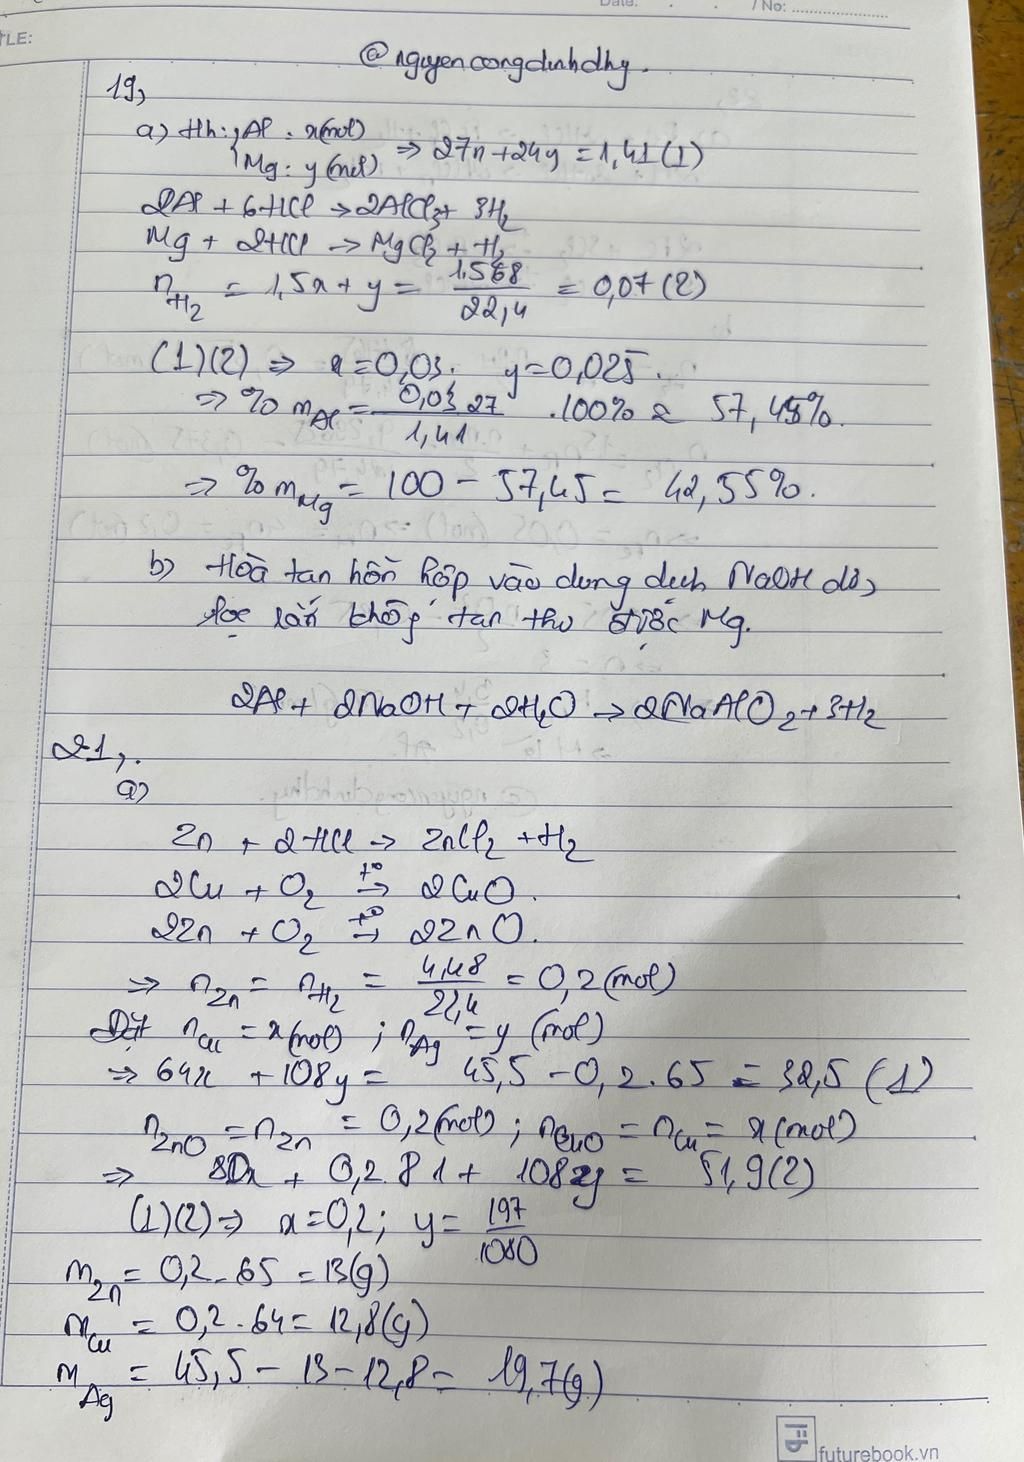 Date: . . / No:
TLE:
@nguyencongdinhdhy.
19,
a) Hh: { Al : x(mol)
Mg: y (mol) ⇒ 27x+24y = 1,41 (1)
2Al + 6HCl → 2AlCl3 + 3H2
Mg + 2HCl → MgCl2 + H2
nH2 = 1,5x + y = 1,568/22,4 = 0,07 (2)
(1)(2) ⇒ x=0,03. y=0,025.
⇒ % mAl = 0,03.27/1,41 .100% ≈ 57,45%.
⇒ % mMg = 100 - 57,45 = 42,55%.
b) Hoà tan hỗn hợp vào dung dịch NaOH dư,
lọc rắn không tan thu được Mg.
2Al + 2NaOH + 2H2O → 2NaAlO2 + 3H2
21,.
a)
Zn + 2HCl → ZnCl2 + H2
2Cu + O2 t°→ 2CuO.
2Zn + O2 t°→ 2ZnO.
⇒ nZn = nH2 = 4,48/22,4 = 0,2 (mol)
Đặt nCu = x(mol) ; nAg = y (mol)
⇒ 64x + 108y = 45,5 - 0,2.65 = 32,5 (1)
nZnO = nZn = 0,2(mol) ; nCuO = nCu = x(mol)
⇒ 80x + 0,2.81 + 108y = 51,9(2)
(1)(2) ⇒ x=0,2; y= 197/1080
mZn = 0,2.65 = 13(g)
mCu = 0,2.64 = 12,8(g)
mAg = 45,5 - 13 - 12,8 = 19,7(g)
futurebook.vn